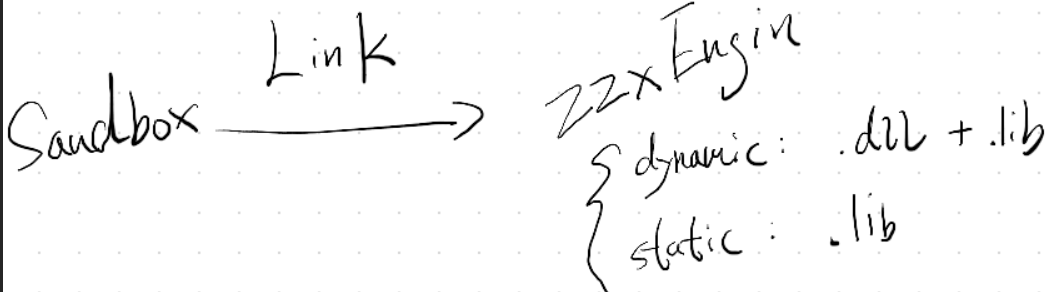 Link
Sandbox
zzxEngin
dynamic: .dll + .lib
static: .lib